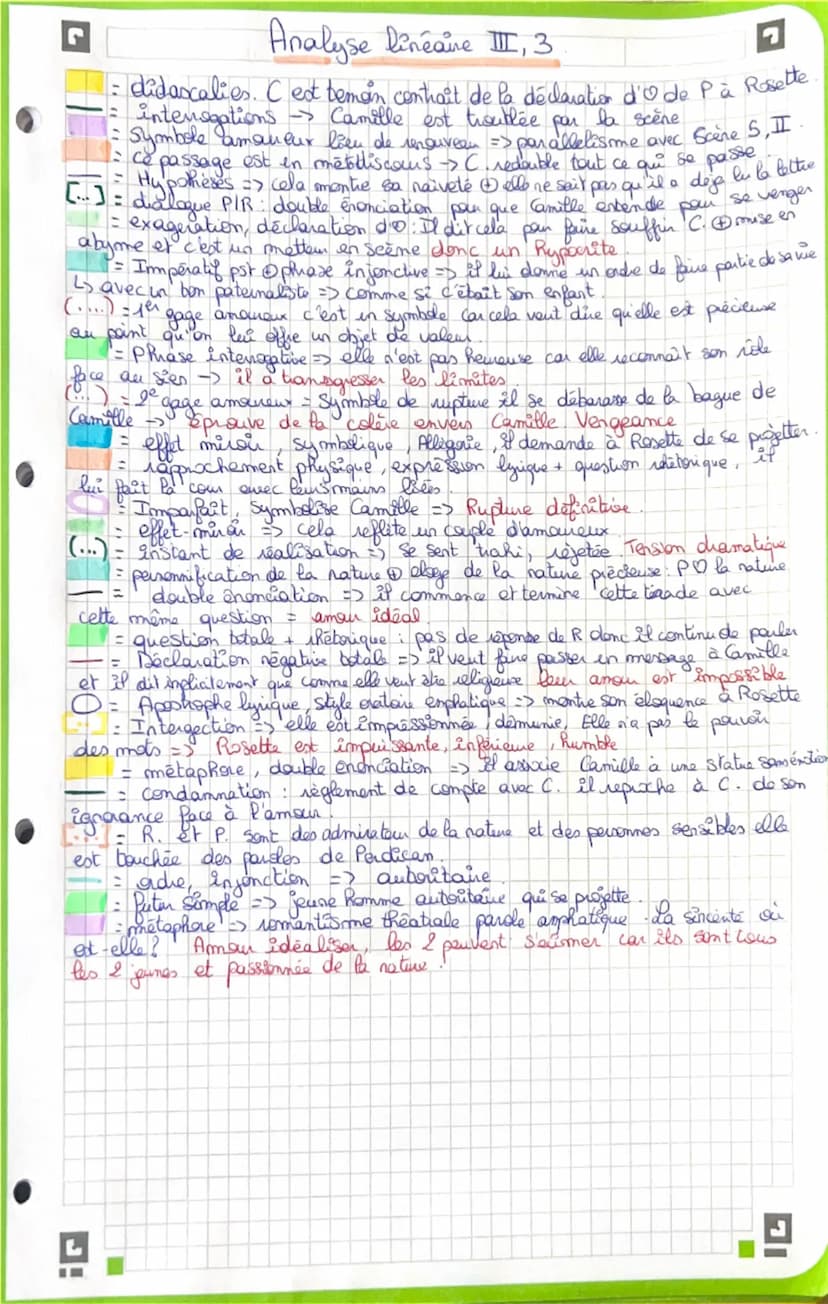 Analyse linéaire III, 3
= didascalies. C est temoin contrait de la déclaration d'♡ de P à Rosette.
= interrogations → Camille est troublée par la scène
= Symbole amoureux lieu de renouveau => parallélisme avec Scène 5, II.
= ce passage est en métadiscours → C. redouble tout ce qui se passe
= Hypothèses => cela montre sa naïveté ⊕ elle ne sait pas qu'il a déjà lu la lettre
[...] = dialogue P/R : double énonciation pour que Camille entende pour se venger
= exagération, déclaration d'♡ : Il dit cela pour faire souffrir C. ⊕ mise en
abyme et c'est un metteur en scène donc un hypocrite.
= Impératif pst ⊕ phrase injonctive => il lui donne un ordre de faire partie de sa vie
↳ avec un ton paternaliste => comme si c'était son enfant.
(....) = 1er gage amoureux c'est un symbole car cela veut dire qu'elle est précieuse
au point qu'on lui offre un objet de valeur.
= Phrase interrogative => elle n'est pas heureuse car elle reconnaît son rôle
face au sien → il a transgresser les limites.
(...) = 2e gage amoureux = Symbole de rupture il se débarasse de la bague de
Camille → Éprouve de la colère envers Camille. Vengeance
= effet miroir, symbolique, Allégorie, il demande à Rosette de se projetter.
= rapprochement physique, expression lyrique + question rhétorique, il
lui fait la cour avec leurs mains liées.
= Imparfait, Symbolise Camille => Rupture définitive.
= effet-miroir => cela reflète un couple d'amoureux
(...) = instant de réalisation => se sent trahi, rejetée. Tension dramatique
= personnification de la nature ⊕ éloge de la nature précieuse : P♡ la nature
= double énonciation => il commence et termine cette tirade avec
cette même question = amour idéal.
= question totale + rhétorique : pas de réponse de R donc il continu de parler
= Déclaration négative totale => il veut faire passer un message à Camille
et il dit implicitement que comme elle veut être religieuse leur amour est impossible
= Apostrophe lyrique, style oratoire emphatique => montre son éloquence à Rosette
= Intergection => elle est impressionnée, démunie, Elle n'a pas le pouvoir
des mots => Rosette est impuissante, inférieure, humble
= métaphore, double énonciation => Il associe Camille à une statue sans émotion
= condamnation : règlement de compte avec C. il reproche à C. de son
ignorance face à l'amour.
[...] = R. et P. sont des admirateur de la nature et des personnes sensibles elle
est touchée des paroles de Perdican.
= ordre, injonction => autoritaire.
= futur simple => jeune homme autoritaire qui se projette.
= métaphore => romantisme théatrale parole amphatique. La sincérité où
est-elle ? Amour idéaliser, les 2 peuvent s'aimer car ils sont tous
les 2 jeunes et passionnée de la nature.